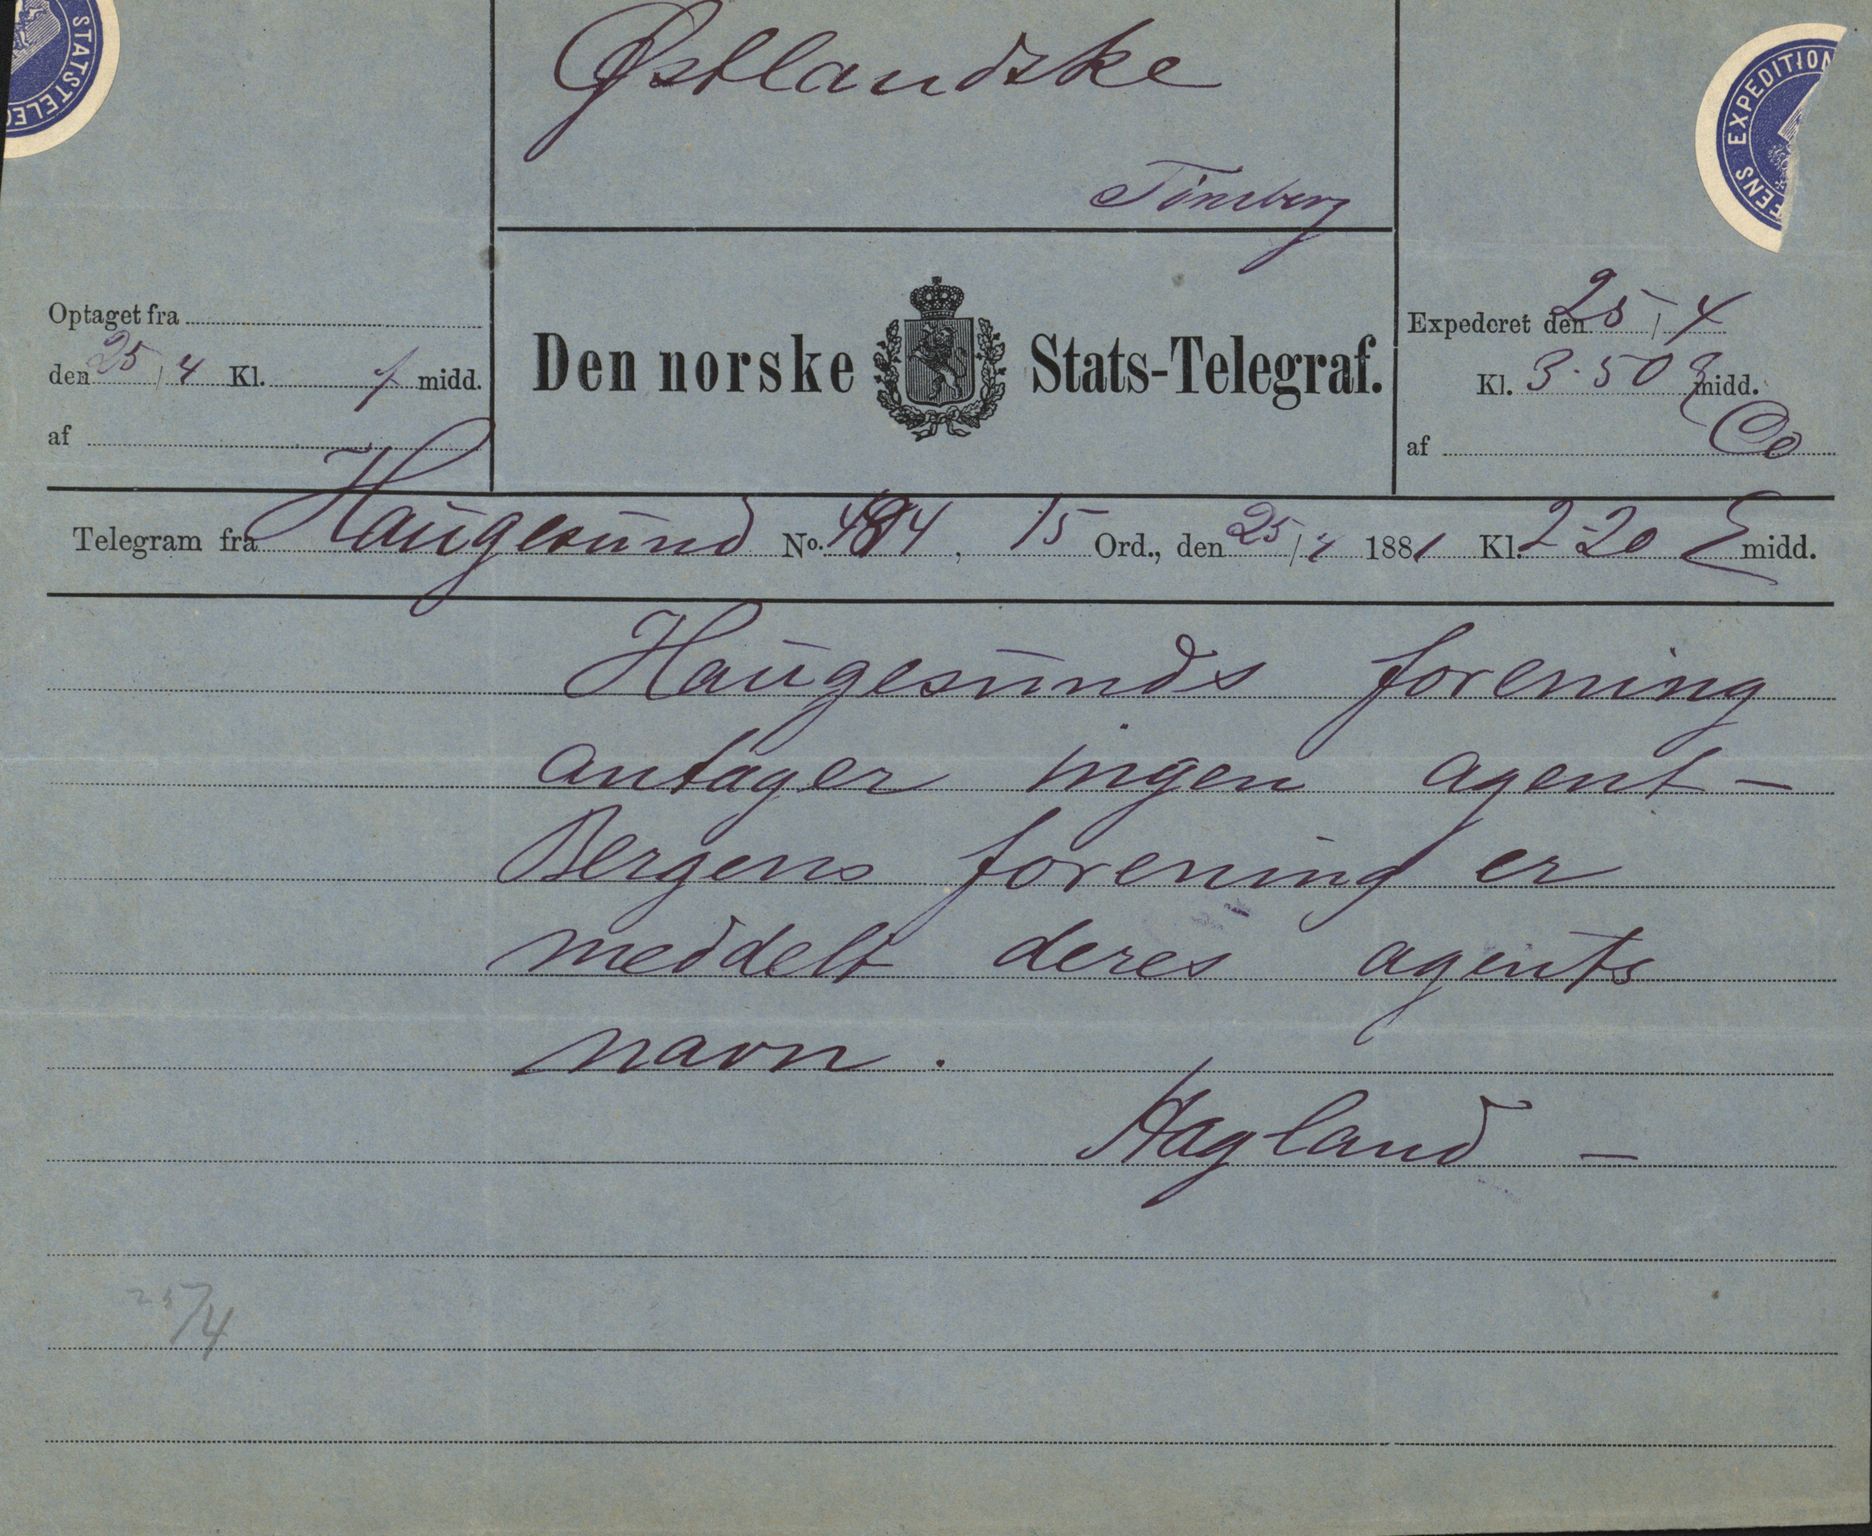 STATSTELEG
Østlandske
ENS EXPEDITION
Tönsberg
Optaget fra
den 25/4 Kl. midd.
af
Den norske Stats-Telegraf.
Expederet den 25/4
Kl. 3.50 E midd.
af
Telegram fra Haugesund No. 484, 15 Ord., den 25/4 1881 Kl. 2-20 E midd.
Haugesunds forening
antager ingen agent –
Bergens forening er
meddelt deres agents
navn .
Hagland –
25/4